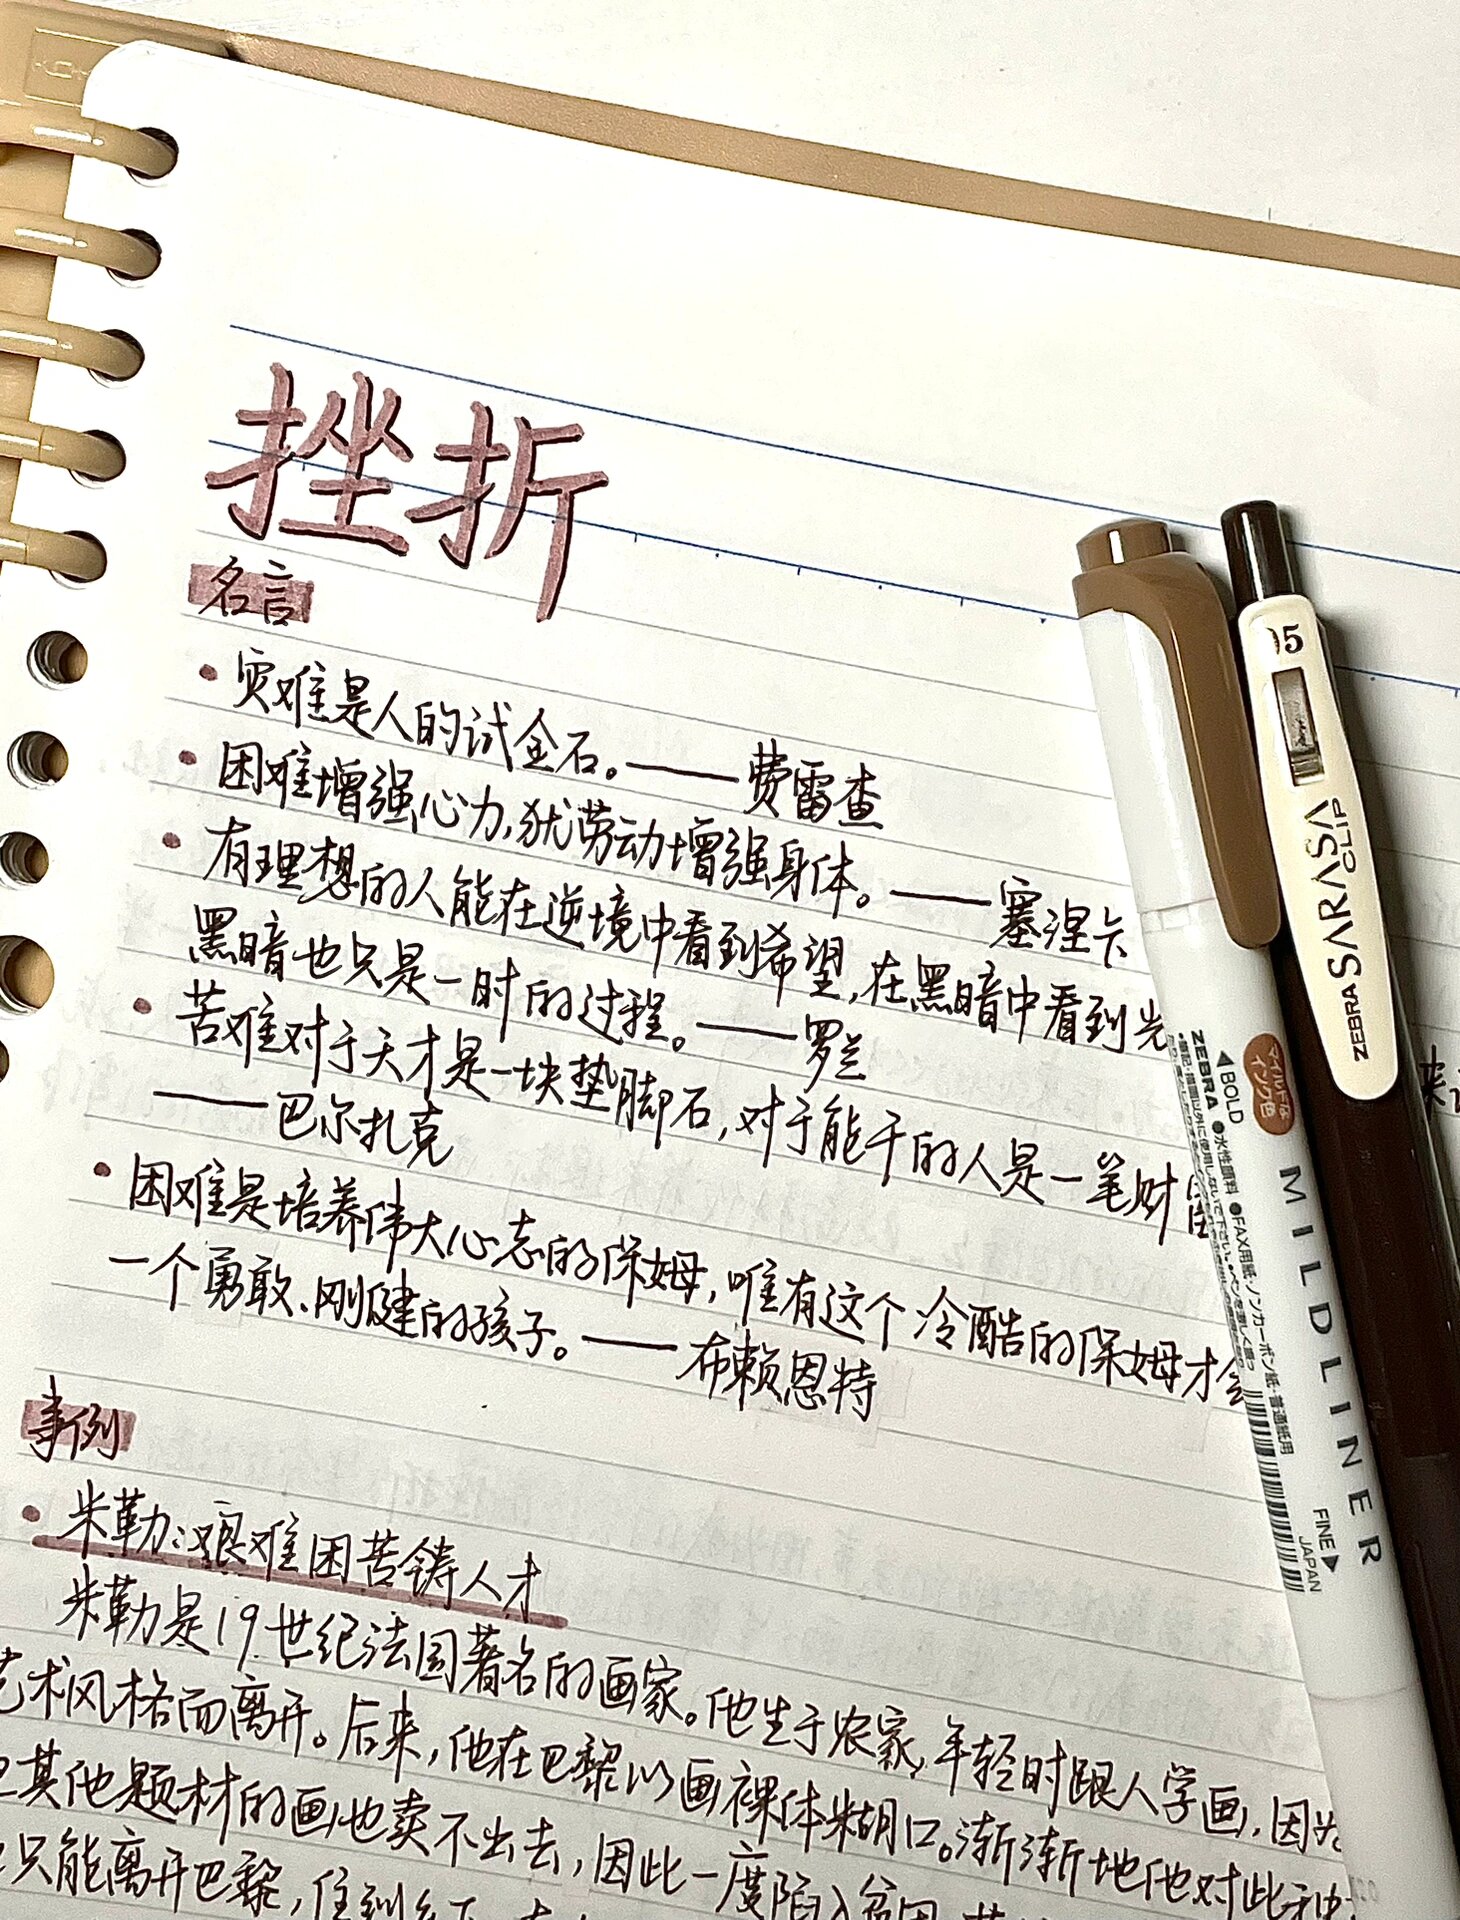 挫折
名言
灾难是人的试金石。——费雷查
困难增强心力,犹劳动增强身体。——塞涅卡
有理想的人能在逆境中看到希望,在黑暗中看到光
黑暗也只是一时的过程。——罗兰
苦难对于天才是一块垫脚石,对于能干的人是一笔财
——巴尔扎克
困难是培养伟大心志的保姆,唯有这个冷酷的保姆才会
一个勇敢、刚健的孩子。——布赖恩特
事例
米勒:艰难困苦铸人才
米勒是19世纪法国著名的画家。他生于农家,年轻时跟人学画,因为
艺术风格而离开。后来,他在巴黎以画裸体糊口。渐渐地他对此种
其他题材的画也卖不出去,因此一度陷入贫困
只能离开巴黎,住到乡下
05
ZEBRA SARASA CLIP
マイルドな インク色
◀BOLD
ZEBRA ●水性顔料 ●FAX用紙・ノンカーボン紙・普通紙用
MILDLINER
FINE▶
JAPAN
来